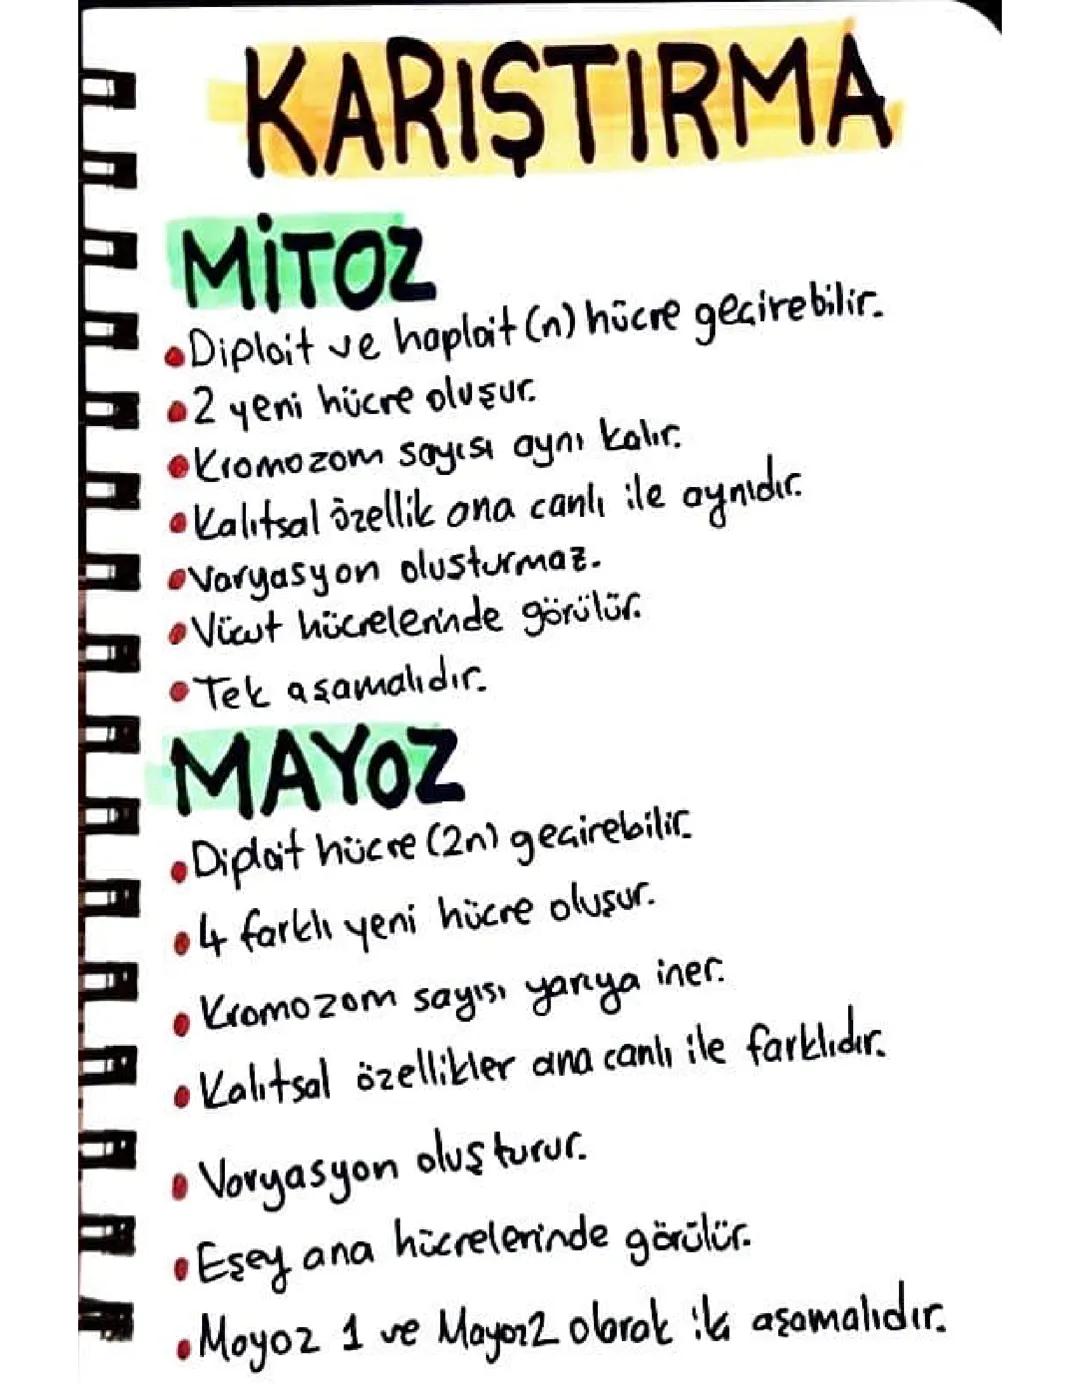 KARIŞTIRMA
MİTOZ
• Diploit ve haploit (n) hücre geçirebilir.
• 2 yeni hücre oluşur.
• Kromozom sayısı aynı kalır.
• Kalıtsal özellik ana canlı ile aynıdır.
• Varyasyon oluşturmaz.
• Vücut hücrelerinde görülür.
• Tek aşamalıdır.
MAYOZ
• Diploit hücre (2n) geçirebilir.
• 4 farklı yeni hücre oluşur.
• Kromozom sayısı yarıya iner.
• Kalıtsal özellikler ana canlı ile farklıdır.
• Varyasyon oluşturur.
• Eşey ana hücrelerinde görülür.
• Mayoz 1 ve Mayoz 2 olarak iki aşamalıdır.